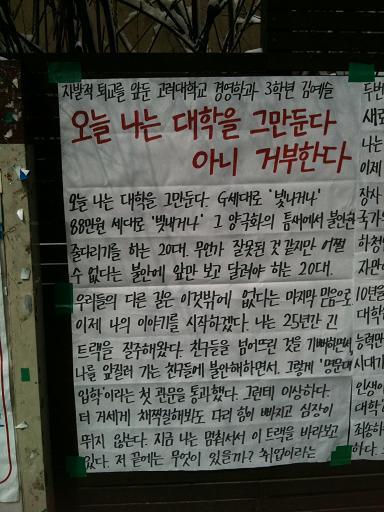 자발적 퇴교를 앞둔 고려대학교 경영학과 3학년 김예슬
오늘 나는 대학을 그만둔다
아니 거부한다
오늘 나는 대학을 그만둔다. G세대로 '빛나거나'
88만원 세대로 '빚내거나' 그 양극화의 틈새에서 불안한
줄타리기를 하는 20대. 무언가 잘못된 것 같지만 어쩔
수 없다는 불안에 앞만 보고 달려야 하는 20대.
우리들의 다른 길은 이것밖에 없다는 마지막 믿음으로
이제 나의 이야기를 시작하겠다. 나는 25년간 긴
트랙을 질주해왔다. 친구들을 넘어뜨린 것을 기뻐하면서,
나를 앞질러 가는 친구들에 불안해하면서. 그렇게 '명문대
입학'이라는 첫 관문을 통과했다. 그런데 이상하다.
더 거세게 채찍질해봐도 다리 힘이 빠지고 심장이
뛰지 않는다. 지금 나는 멈춰서서 이 트랙을 바라보고
있다. 저 끝에는 무엇이 있을까? 취업이라는
두번
새로
나는
이제
장사
국가와
하청업
자만이
10년을
대학
능력만
시대가
인생
대학
죄송하
하다